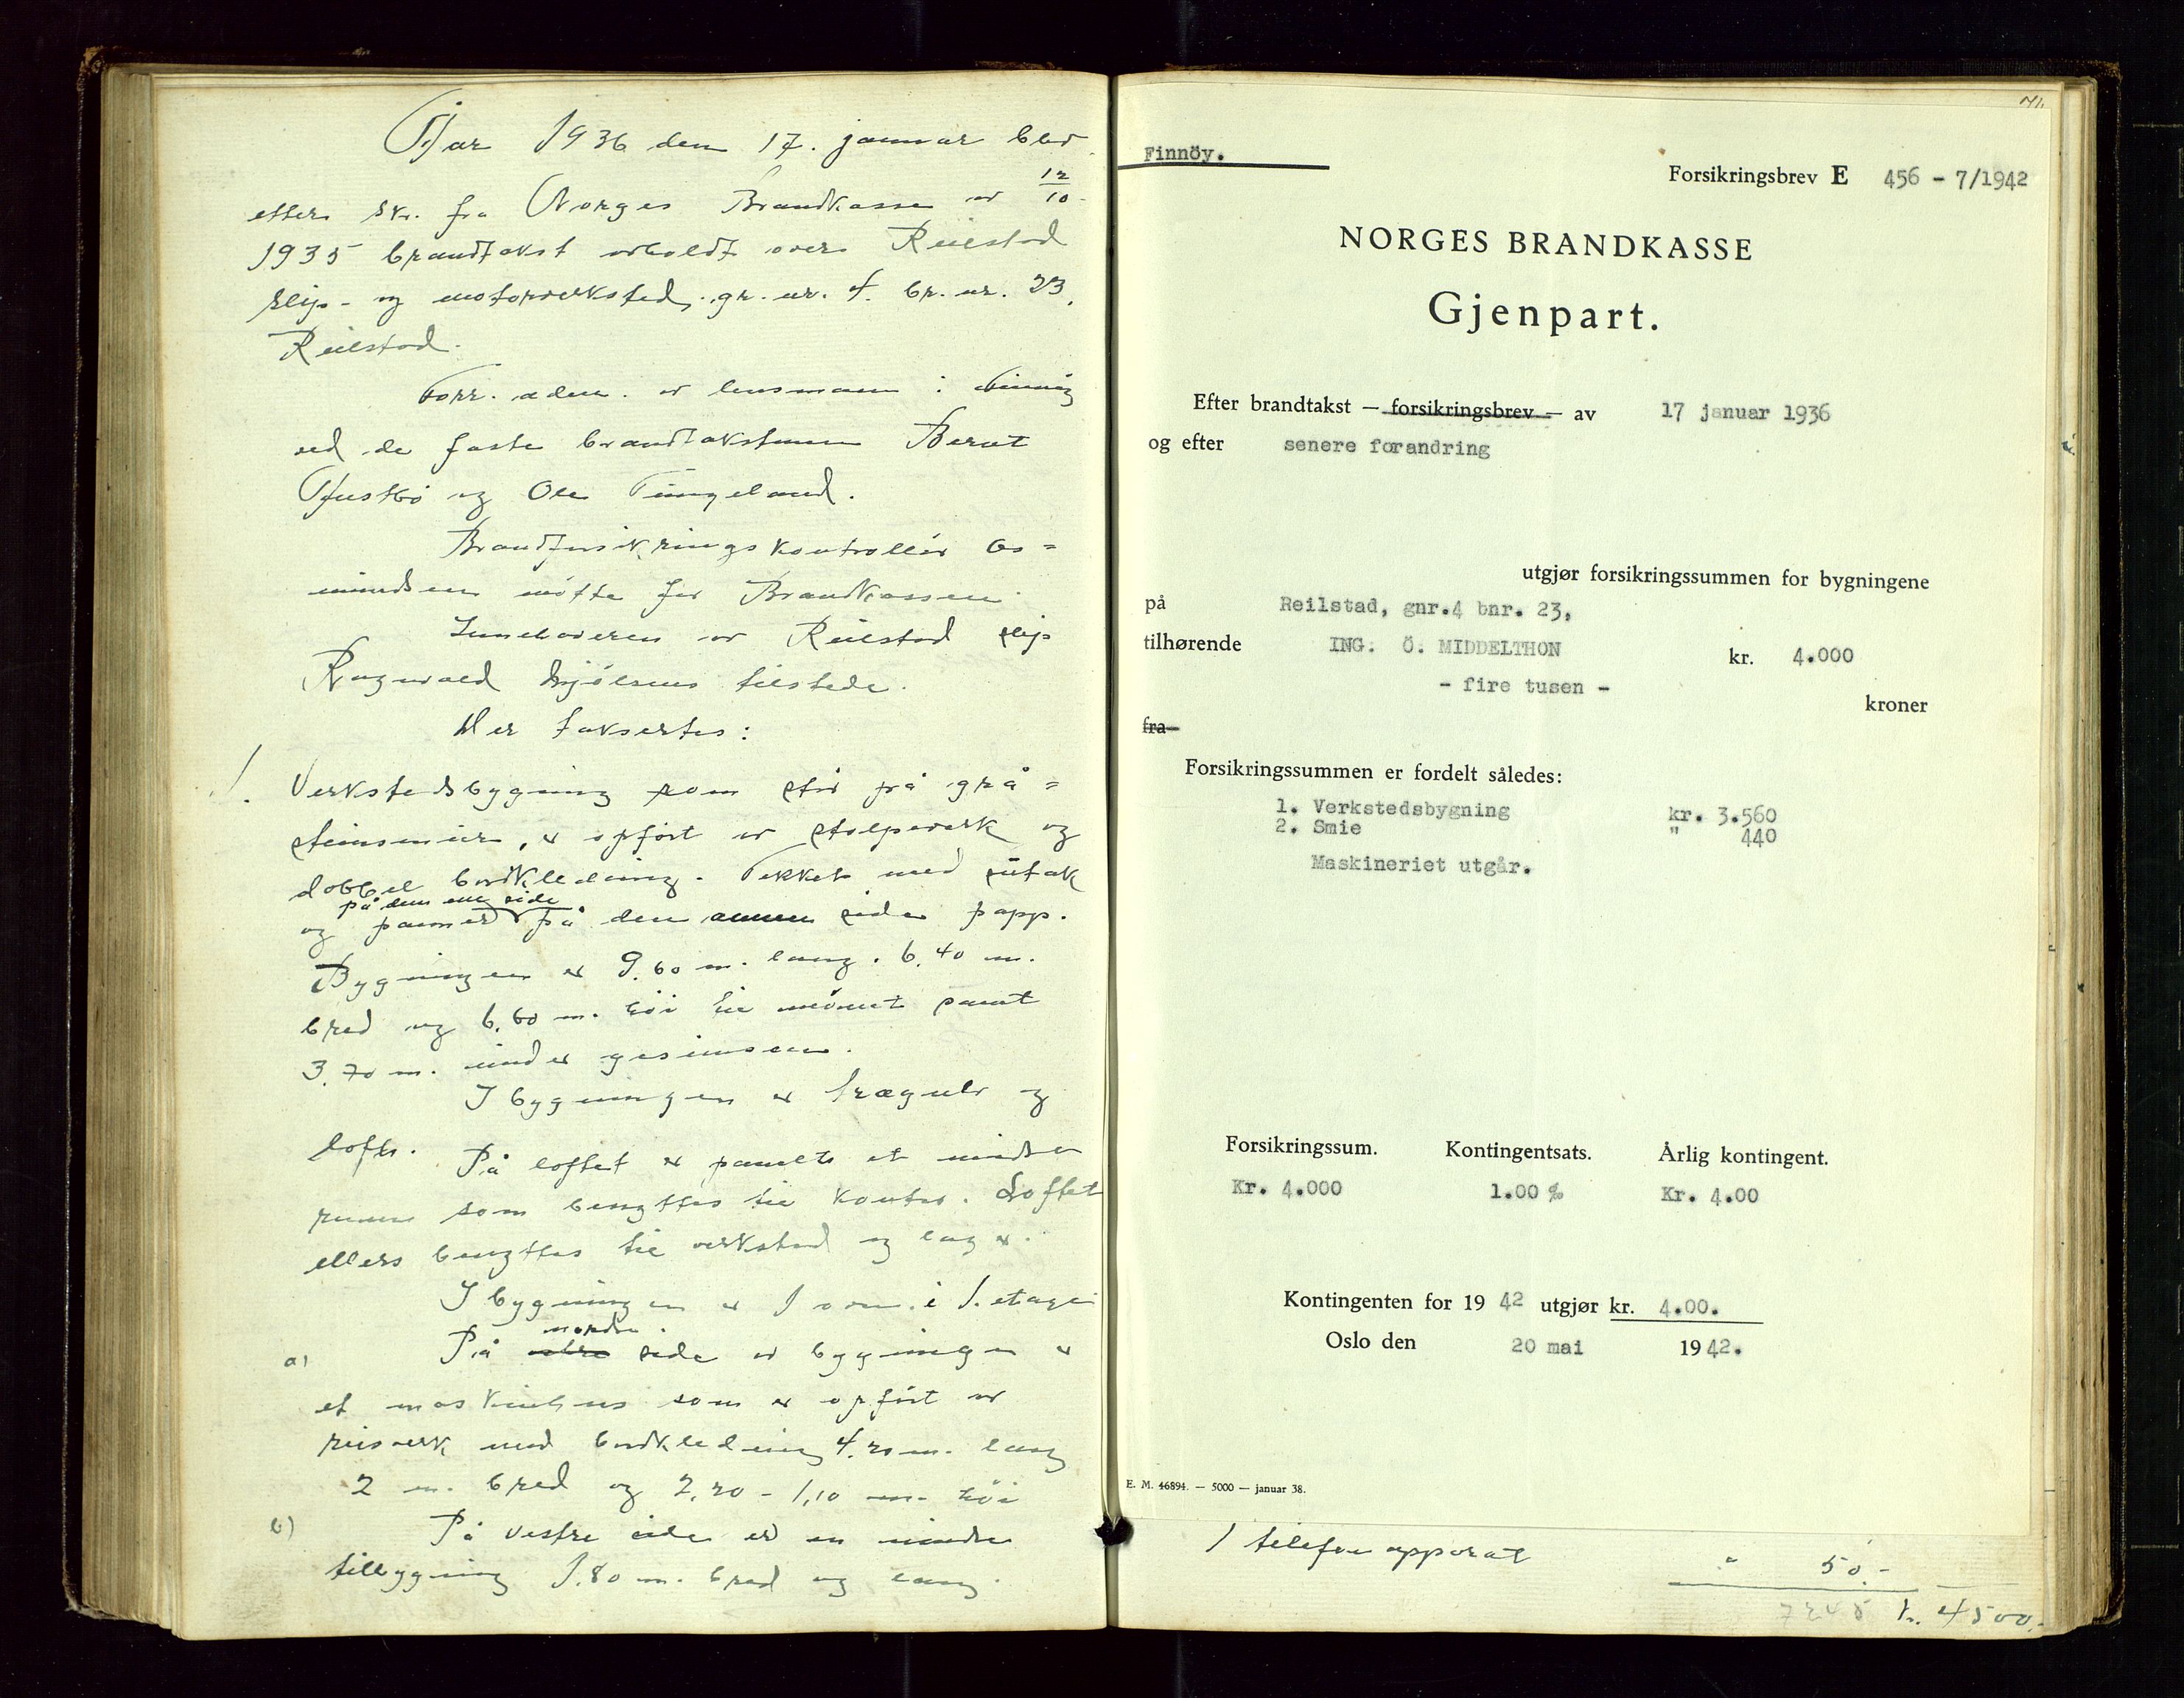 År 1936 den 17. januar blev
efter skr. fra Norges Brandkasse av 12/10-
1935 brandtakst avholdt over Reilstad
slip- og motorverksted, gr. nr. 4. br. nr. 23,
Reilstad.
Forr. adm. av lensmann i Finnøy
ved de faste brandtakstmenn Bernt
og Ole Tungeland.
Brandforsikringskontrollør As=
mundsen møtte for Brandkassen.
Innehaveren av Reilstad slip
Ragnvald tilstede.
Her taksertes:
1. Verkstedsbygning som står på grå=
steinsmur, er opført av stolpeverk og
dobbel bordkledning. Tekket med sutak
på den ene side
og panner på den annen side papp.
Bygningen er 9.60 m. lang. 6.40 m.
bred og 6.60 m. høi til mønet samt
3.70 m. under gesimsen.
I bygningen er trægulv og
loft. På loftet er panelt et mindre
rum som benyttes til kontor. Loftet
ellers benyttes til verksted og lager.
I bygningen er 1 ovn i 1. etage
nordre
a) På østre side av bygningen er
et maskinhus som er opført av
reisverk med bordkledning 4.20 m. lang
2 m. bred og 2,20 - 1,10 m. høi
b) På vestre side er en mindre
tilbygning 1.80 m. bred og lang.
71.
Finnöy.
Forsikringsbrev E 456 - 7/1942
NORGES BRANDKASSE
Gjenpart.
Efter brandtakst — forsikringsbrev — av 17 januar 1936
og efter senere forandring
utgjør forsikringssummen for bygningene
på Reilstad, gnr.4 bnr. 23,
tilhørende ING. Ö. MIDDELTHON kr. 4.000
- fire tusen -
kroner
fra
Forsikringssummen er fordelt således:
1. Verkstedsbygning kr. 3.560
2. Smie " 440
Maskineriet utgår.
Forsikringssum. Kontingentsats. Årlig kontingent.
Kr. 4.000 1.00 ‰ Kr. 4.00
Kontingenten for 1942 utgjør kr. 4.00.
Oslo den 20 mai 1942.
E. M. 46894. — 5000 — januar 38.
1 telefon apparat " 50.-
7245 kr. 4500.-